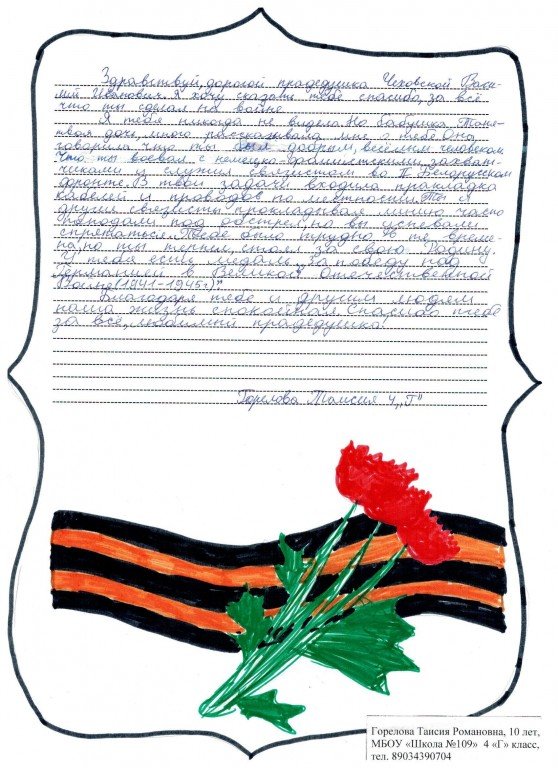 Здравствуй, дорогой прадедушка Чеховской Васи-
лий Иванович. Я хочу сказать тебе спасибо за всё
что ты сделал на войне.
Я тебя никогда не видела. Но бабушка Таня-
твоя дочь, много рассказывала мне о тебе. Она
говорила что ты был добрым, весёлым человеком.
Что ты воевал с немецко-фашистскими захват-
чиками и служил связистом во II Белорусском
фронте. В твои задачи входила прокладка
кабелей и проводов по местности. Ты и
другие связисты прокладывая линию часто
попадали под обстрел, но вы успевали
спрятаться. Тебе было трудно в те време-
на, но ты терпел, стоял за свою Родину.
У тебя есть медаль „За победу над
Германией в Великой отечественной
Войне (1941-1945г)"
Благодаря тебе и другим людям
наша жизнь спокойная. Спасибо тебе
за всё, любимый прадедушка!
Горелова Таисия 4 „Г"
Горелова Таисия Романовна, 10 лет,
МБОУ «Школа №109» 4 «Г» класс,
тел. 89034390704